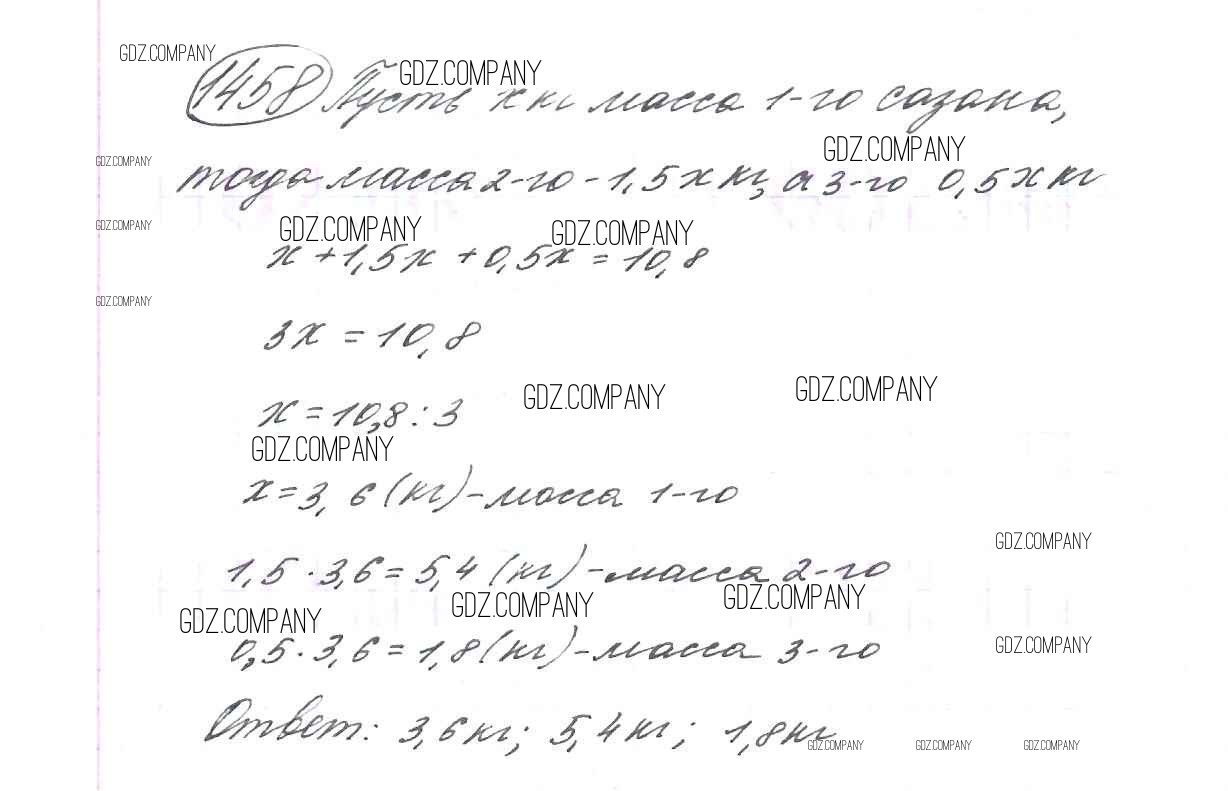 GDZ.COMPANY
1458 Пусть x кг масса 1-го сазана,
GDZ.COMPANY
GDZ.COMPANY
GDZ.COMPANY
тогда масса 2-го - 1,5x кг, а 3-го 0,5x кг
GDZ.COMPANY
GDZ.COMPANY
GDZ.COMPANY
x + 1,5x + 0,5x = 10,8
GDZ.COMPANY
3x = 10,8
GDZ.COMPANY
GDZ.COMPANY
x = 10,8 : 3
GDZ.COMPANY
x = 3,6 (кг) - масса 1-го
GDZ.COMPANY
1,5 · 3,6 = 5,4 (кг) - масса 2-го
GDZ.COMPANY
GDZ.COMPANY
GDZ.COMPANY
0,5 · 3,6 = 1,8 (кг) - масса 3-го
GDZ.COMPANY
Ответ: 3,6 кг; 5,4 кг; 1,8 кг
GDZ.COMPANY
GDZ.COMPANY
GDZ.COMPANY